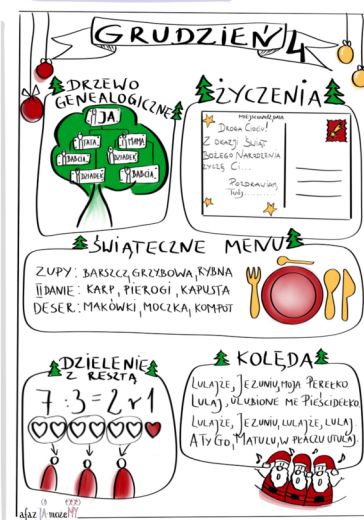 GRUDZIEŃ 4
DRZEWO
GENEALOGICZNE
JA
TATA
MAMA
BABCIA
DZIADEK
DZIADEK
BABCIA
ŻYCZENIA
MIEJSCE, DATA
DROGA CIOCIU!
Z OKAZJI ŚWIĄT
BOŻEGO NARODZENIA
ŻYCZĘ CI...
POZDRAWIAM,
TWÓJ
ŚWIĄTECZNE MENU
ZUPY: BARSZCZ, GRZYBOWA, RYBNA
II DANIE: KARP, PIEROGI, KAPUSTA
DESER: MAKÓWKI, MOCZKA, KOMPOT
DZIELENIE
Z RESZTĄ
7 : 3 = 2 r 1
KOLĘDA
LULAJŻE, JEZUNIU, MOJA PEREŁKO
LULAJ, ULUBIONE ME PIEŚCIDEŁKO
LULAJŻE, JEZUNIU, LULAJŻE, LULAJ
A TY GO, MATULU, W PŁACZU UTULAJ.
afaz JA może MY